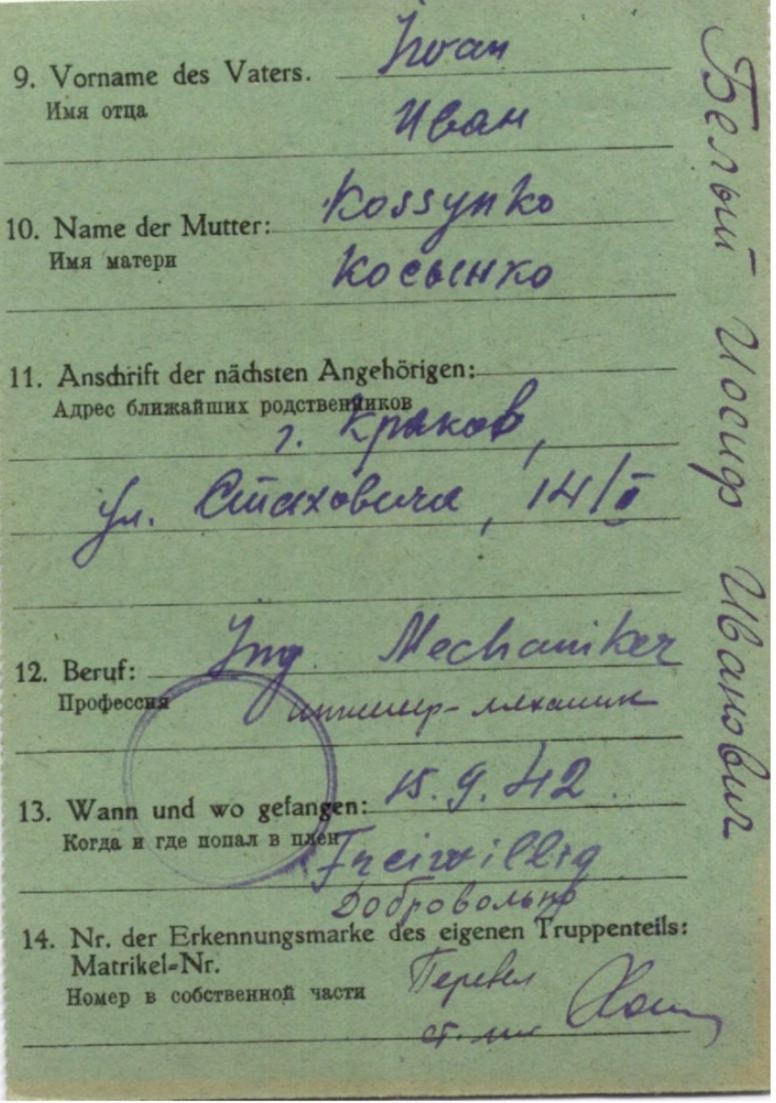 9. Vorname des Vaters. Iwan
Имя отца Иван
10. Name der Mutter: Kossynko
Имя матери Косынко
11. Anschrift der nächsten Angehörigen:
Адрес ближайших родственников
г. Краков,
ул. Стаховича, 14/I
12. Beruf: Ing. Mechaniker
Профессия инженер-механик
13. Wann und wo gefangen: 15.9.42.
Когда и где попал в плен Freiwillig
Добровольно
14. Nr. der Erkennungsmarke des eigenen Truppenteils:
Matrikel-Nr.
Номер в собственной части Перевел
ст.
Белый Иосиф Иванович